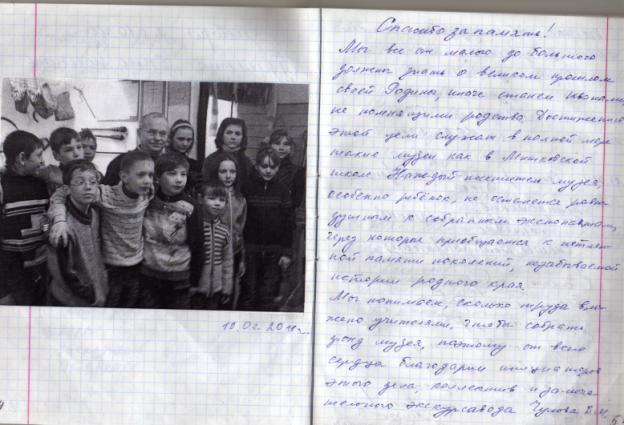 10.02.2011г.
Спасибо за память!
Мы все от малого до большого
должны знать о великом прошлом
своей Родины, иначе станем Иванами,
не помнящими родства. Достижению
этой цели служат в полной мере
такие музеи как в
школе. Каждый посетитель музея,
особенно ребёнок, не останется равно-
душным к собранным экспонатам,
через которые приобщается к
памяти поколений, незабываемой
истории родного края.
Мы понимаем, сколько труда вло-
жено учителями, чтобы собрать
фонд музея, поэтому от всего
сердца благодарим инициаторов
этого дела, коллектив и замеча-
тельного экскурсовода